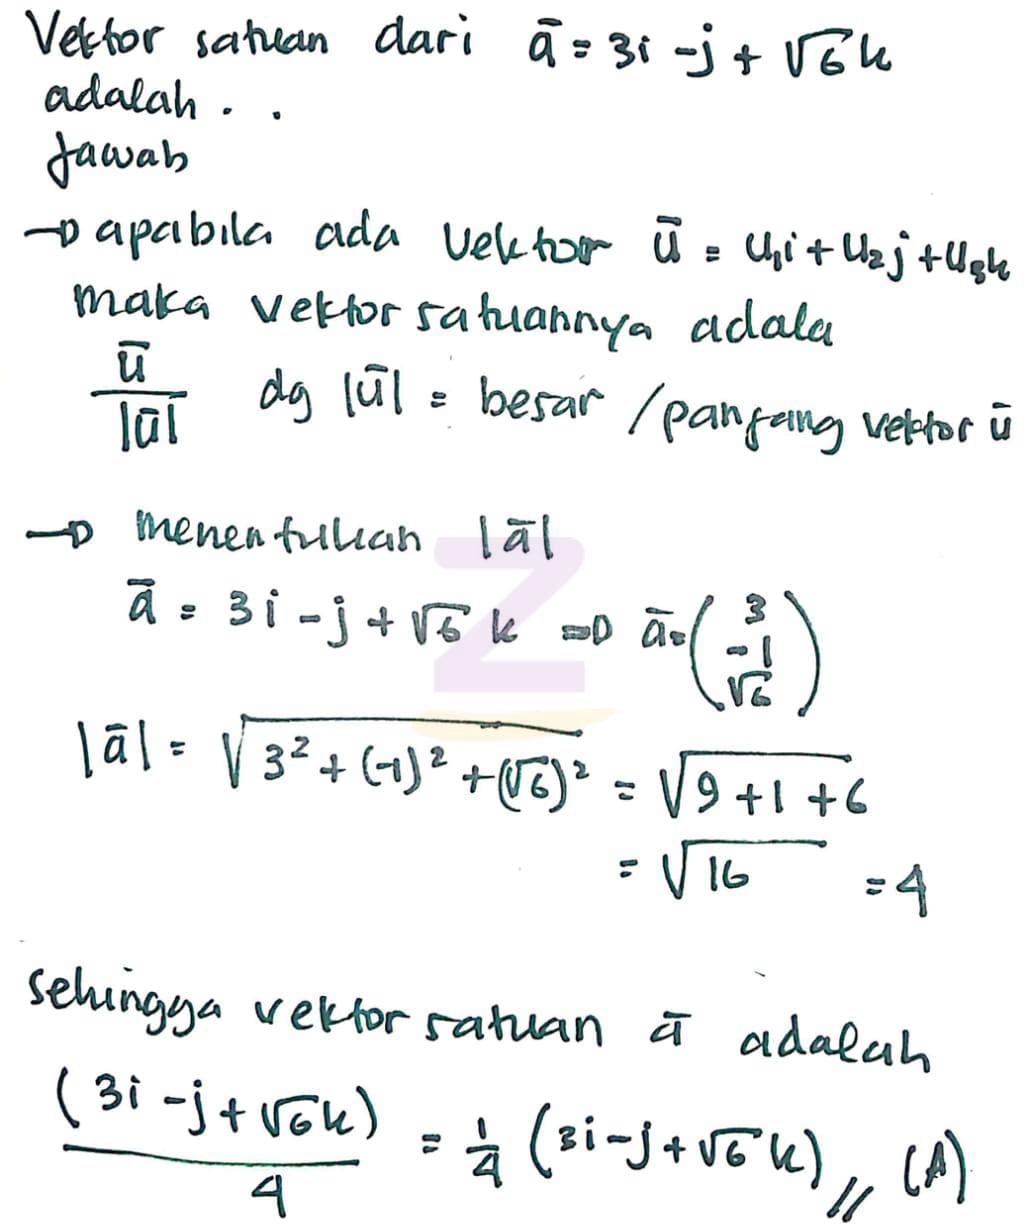 Vektor satuan dari ā = 3i - j + √6 k
adalah . .
Jawab
→ apabila ada vektor ū = u₁i + u₂j + u₃k
maka vektor satuannya adala
ū/|ū| dg |ū| = besar / panjang vektor ū
→ menentukan |ā|
ā = 3i - j + √6 k ⇒ ā = (3 -1 √6)
|ā| = √(3² + (-1)² + (√6)²) = √(9 + 1 + 6)
= √16 = 4
sehingga vektor satuan ā adalah
(3i - j + √6 k)/4 = 1/4 (3i - j + √6 k) // (A)
Z